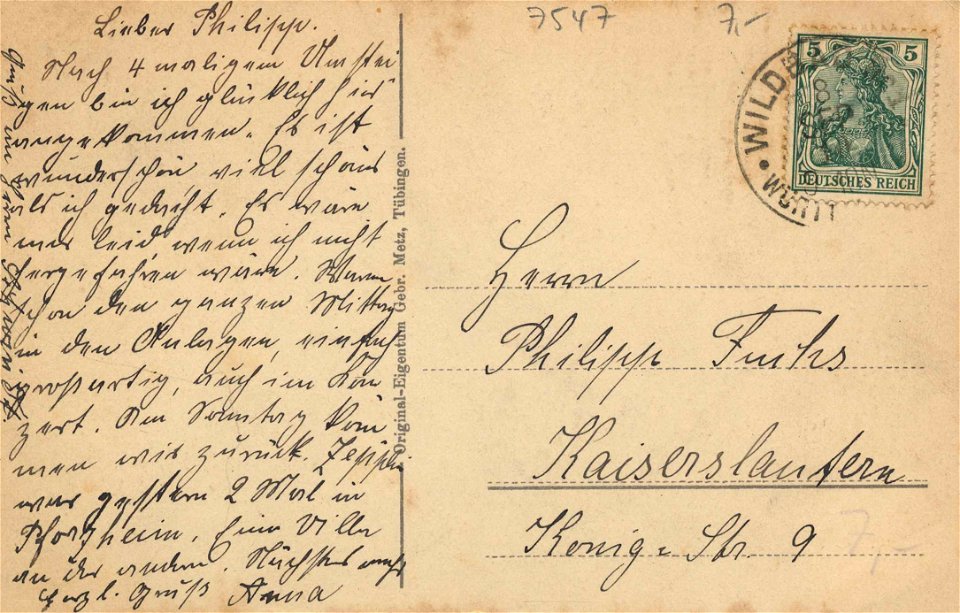 Lieber Philipp.
Nach 4 maligem Umstei
gen bin ich glücklich hier
angekommen. Es ist
wunderschön viel schöns
als ich gedacht. Es wäre
mir leid wenn ich nicht
hergefahren wäre. Waren
schon den ganzen Mittag
in den Anlagen, einfach
großartig, auch im Kon
zert. Am Sonntag kom
men wir zurück. Zeppelin
war gestern 2 Mal in
Pforzheim. Eine Villa
an der andern. Nächstes mehr
herzl. Gruß Anna
Gruß an Herrn
Original-Eigentum Gebr. Metz, Tübingen.
7547
7,-
5 5
DEUTSCHES REICH
WILDB
WÜRTT
Herrn
Philipp Fuchs
Kaiserslautern
König-Str. 9
7,-